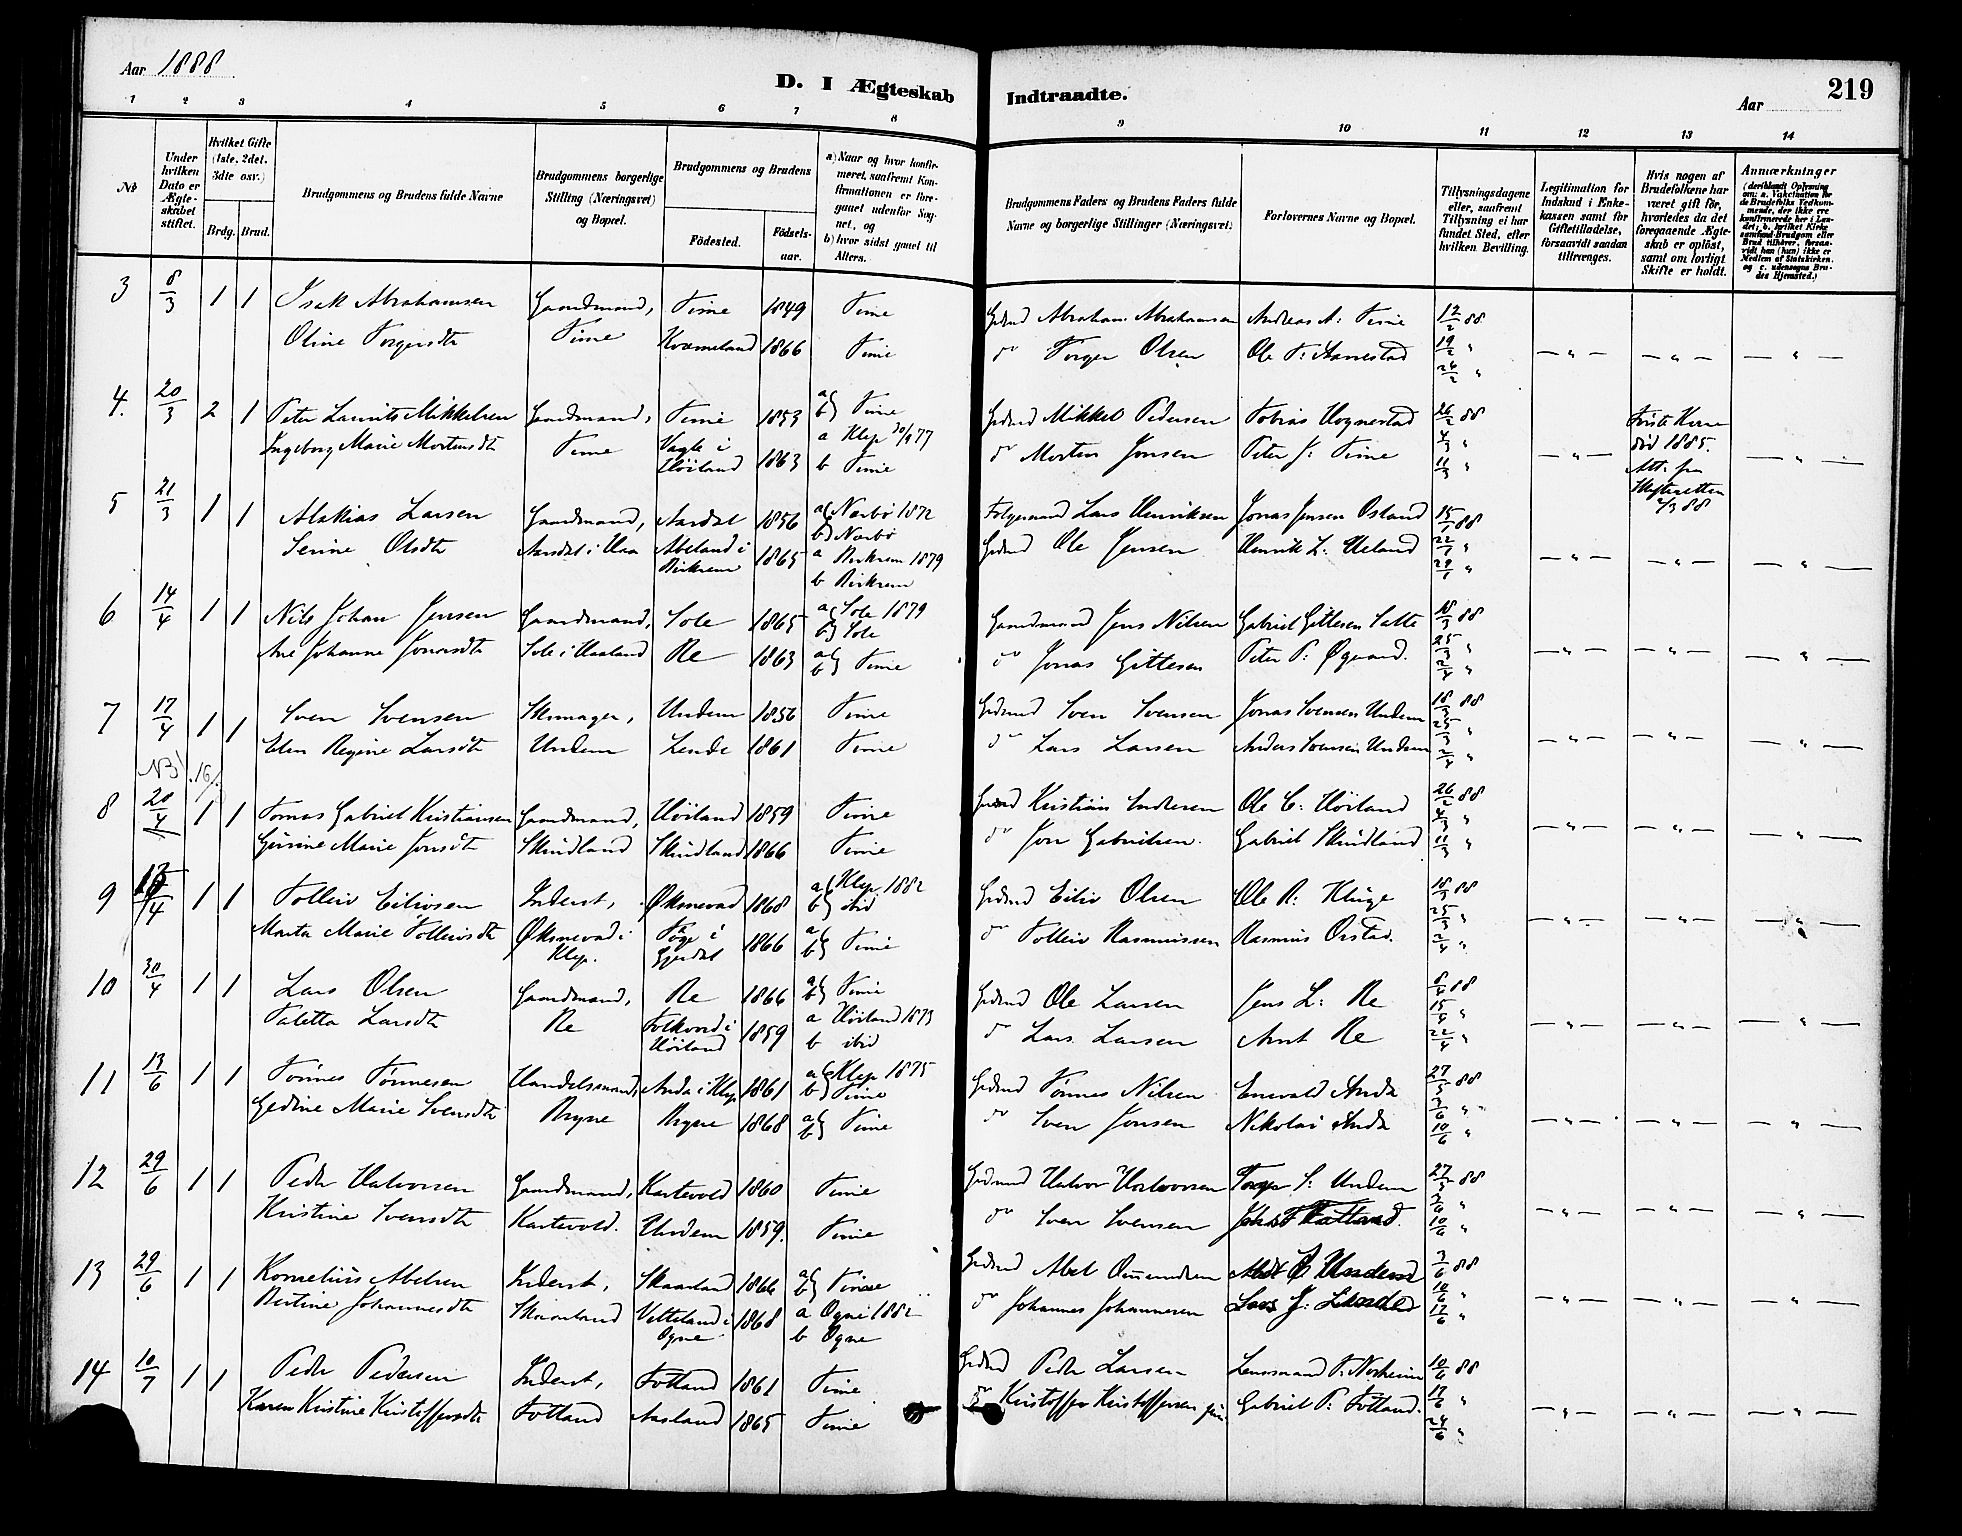 Aar 1888
D. I Ægteskab
Indtraadte.
Aar
219
1 2 3 4 5 6 7 8
9 10 11 12 13 14
No
Under hvilken Dato er Ægteskabet stiftet.
Hvilket Gifte (1ste, 2det, 3die osv.)
Brdg. Brud.
Brudgommens og Brudens fulde Navne
Brudgommens borgerlige Stilling (Næringsvei) og Bopæl.
Brudgommens og Brudens
Fødested.
Fødselsaar.
a) Naar og hvor konfirmeret, saafremt Konfirmationen er foregaaet udenfor Sognet, og
b) hvor sidst gaaet til Alters.
Brudgommens Faders og Brudens Faders fulde Navne og borgerlige Stillinger (Næringsvei)
Forlovernes Navne og Bopæl.
Tillysningsdagene eller, saafremt Tillysning ei har fundet Sted, efter hvilken Bevilling.
Legitimation for Indskud i Enkekassen samt for Giftetilladelse, forsaavidt saadan tiltrænges.
Hvis nogen af Brudefolkene har været gift før, hvorledes da det foregaaende Ægteskab er opløst, samt om lovligt Skifte er holdt.
Anmærkninger
(deriblandt Oplysning om: a. Vakcination for de Brudefolks Vedkommende, der ikke ere konfirmerede her i Landet; b. hvilket Kirkesamfund Brudgom eller Brud tilhører, forsaavidt han (hun) ikke er Medlem af Statskirken. og c. udensogns Brudes Hjemsted.)
3 8/3 1 1 Isak Abrahamsen Gaardmand, Time 1849 Time Grdmd Abraham Abrahamsen Andreas A: Time 12/2 88
Oline Torgersdtr Time Kvæmeland 1866 Time do Torger Olsen Ole T: Aanestad 19/2 "
26/2 "
4. 20/3 2 1 Peter Laurits Mikkelsen Gaardmand, Time 1853 a b Time Grdmd Mikkel Pedersen Tobias Hognestad 26/2 88 Første Kone
Ingeborg Marie Mortensdtr Time Vagle i Høiland 1863 a Klep 30/9 77 b Time do Morten Jonsen Peter J: Time 4/3 " død 1885.
11/3 " Att: fra Skifteretten 2/3 88
5 21/3 1 1 Mathias Larsen Gaardmand, Aardal 1856 a Nærbø 1872 b Nærbø Folgemand Lars Henriksen Jonas Jensen Osland 15/1 88
Serine Olsdtr Aardal i Haa Abeland i Birkrem 1865 a Birkrem 1879 b Birkrem Grdmd Ole Jensen Henrik L: Ueland 22/1 "
29/1 "
6 14/4 1 1 Nils Johan Jensen Gaardmand, Sole 1865 a Sole 1879 b Sole Gaardmand Jens Nilsen Gabriel Gittesen Salte 18/3 88
Ane Johanne Jonasdtr Sole i Haaland Re 1863 a b Time do Jonas Gittesen Peter P: Øgaard. 25/3 "
2/4 "
7 17/4 1 1 Sven Svensen Skomager, Undem 1856 Time Grdmd Sven Svensen Jonas Svensen Undem 18/3 88
Elen Regine Larsdtr Undem Lende 1861 Time do Lars Larsen Anders Svensen Undem 25/3 "
2/4 "
NB 16/
8 20/4 1 1 Tomas Gabriel Kristiansen Gaardmand, Høiland 1859 Time Grdmd Kristian Endresen Ole C. Høiland 26/2 88
Gurine Marie Jonsdtr Skindland Skindland 1866 Time do Jon Gabrielsen Gabriel Skindland 4/3 "
11/3 "
9 1 1 Tolleiv Eilivsen Inderst, Øksnevad 1868 a Klep 1882 b ibid Grdmd Eiliv Olsen Ole R: Kluge 18/3 88
Marta Marie Tolleivsdtr Øksnevad i Klep. i Gjesdal 1866 a b Time do Tolleiv Rasmussen Rasmus Orstad. 25/3 "
2/4 "
10 30/4 1 1 Lars Olsen Gaardmand, Re 1866 a b Time Grdmd Ole Larsen Jens L: Re 8/4 88
Taletta Larsdtr Re Folkvord i Høiland 1859 a Høiland 1873 b ibid do Lars Larsen Arnt Re 15/4 "
22/4 "
11 13/6 1 1 Tønnes Tønnesen Handelsmand, Anda i Klep 1861 a Klep 1875 b Time Grdmd Tønnes Nilsen Enevald Anda 27/5 88
Gedine Marie Svensdtr Bryne Bryne 1868 a b Time do Sven Jonsen Nikolai Anda 3/6 "
10/6 "
12 29/6 1 1 Peder Halvorsen Gaardmand, Kartevold 1860 Time Grdmand Halvor Halvorsen Torger S: Undem 27/5 88
Kristine Svensdtr Kartevold. Undem 1859. Time do Sven Svensen 3/6 "
10/6 "
13 29/6 1 1 Kornelius Abelsen Inderst, Skaarland 1866 a b Time Grdmd Abel Ommundsen Undem 3/6 88
Bertine Johannesdtr Skaarland Vetteland i Ogne 1868 a Ogne 1882 b Ogne do Johannes Johannesen Lars J: Lende 10/6 "
17/6 "
14 10/7 1 1 Peder Pedersen Inderst, Fotland 1861 Time Grdmd Peder Larsen Lensmand T: Norheim 10/6 88
Karen Kristine Kristoffersdtr Fotland Aasland 1865 Time do Kristoffer Kristoffersen Gabriel P: Fotland. 17/6 "
24/6 "